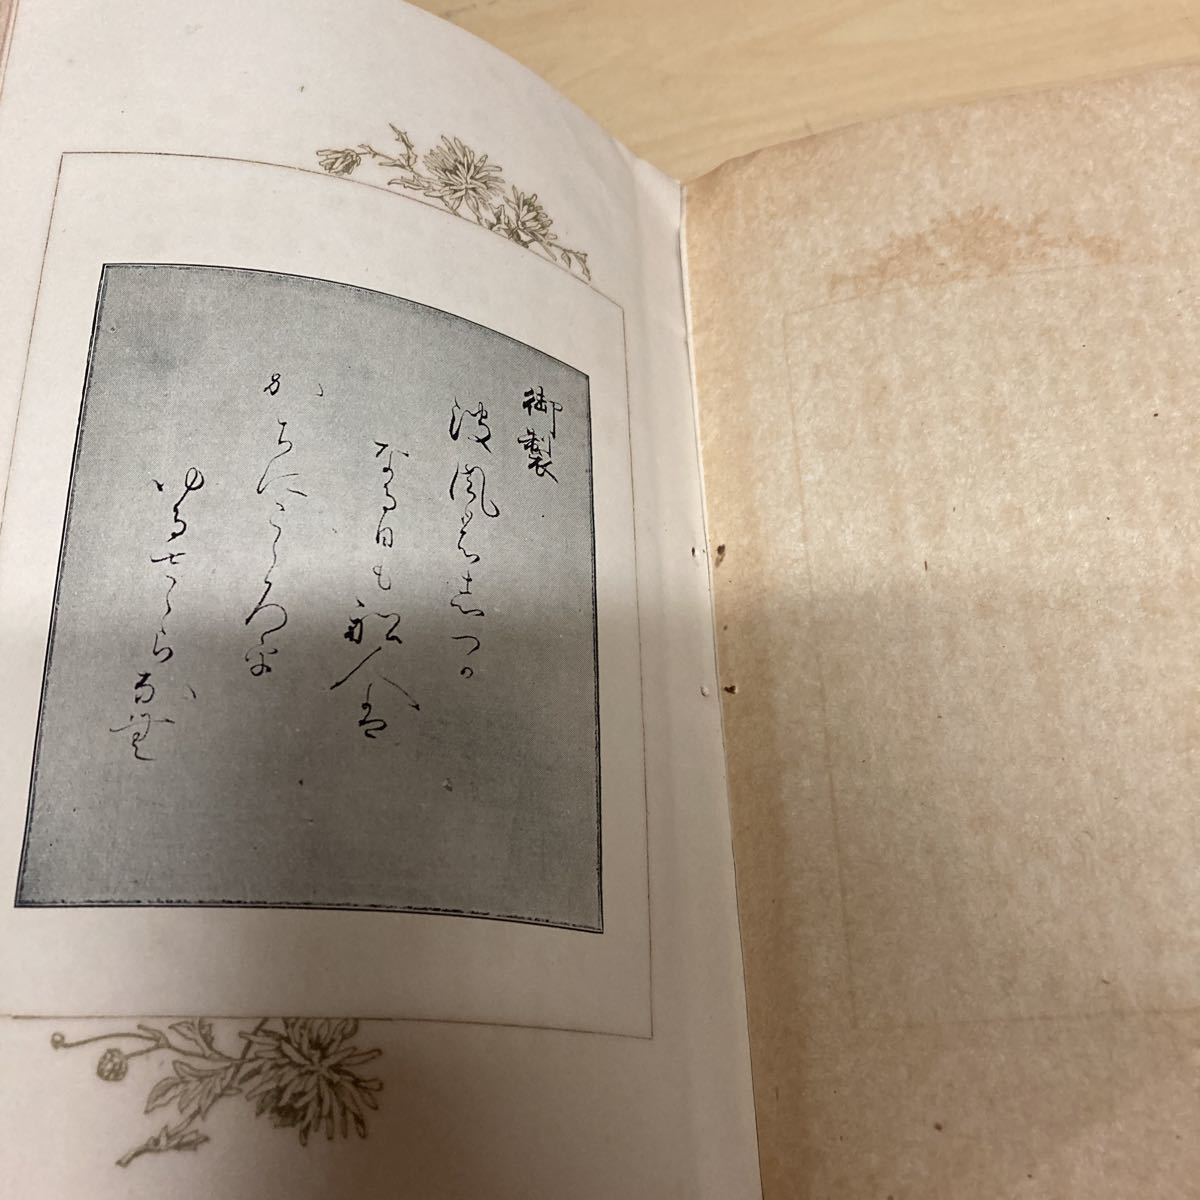 御製
波風はしつか
なる日も船人は
かちにこゝろを
ゆるさゝらなむ